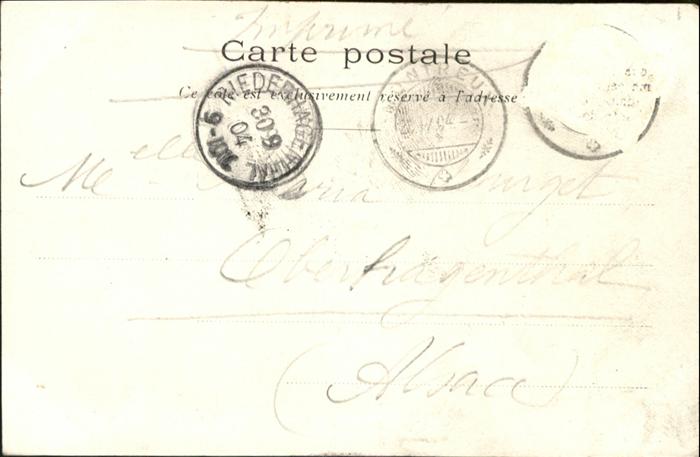 Imprimé
Carte postale
Ce côté est exclusivement réservé à l'adresse
NIEDERHAGENTHAL
30 9
04
Melle Maria
Oberhagenthal
(Alsace)